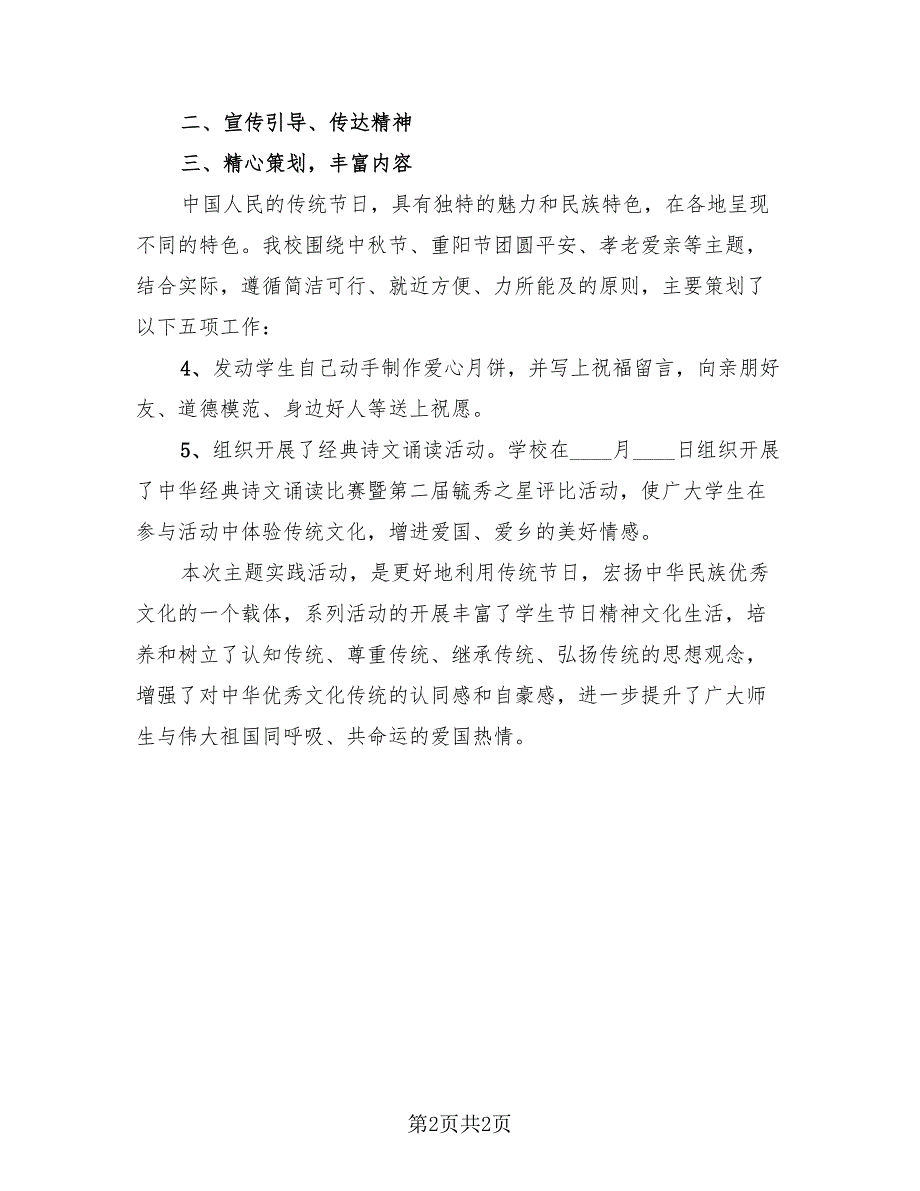 二、宣传引导、传达精神
三、精心策划，丰富内容
中国人民的传统节日，具有独特的魅力和民族特色，在各地呈现
不同的特色。我校围绕中秋节、重阳节团圆平安、孝老爱亲等主题，
结合实际，遵循简洁可行、就近方便、力所能及的原则，主要策划了
以下五项工作：
4、发动学生自己动手制作爱心月饼，并写上祝福留言，向亲朋好
友、道德模范、身边好人等送上祝愿。
5、组织开展了经典诗文诵读活动。学校在____月____日组织开展
了中华经典诗文诵读比赛暨第二届毓秀之星评比活动，使广大学生在
参与活动中体验传统文化，增进爱国、爱乡的美好情感。
本次主题实践活动，是更好地利用传统节日，宏扬中华民族优秀
文化的一个载体，系列活动的开展丰富了学生节日精神文化生活，培
养和树立了认知传统、尊重传统、继承传统、弘扬传统的思想观念，
增强了对中华优秀文化传统的认同感和自豪感，进一步提升了广大师
生与伟大祖国同呼吸、共命运的爱国热情。
第2页共2页